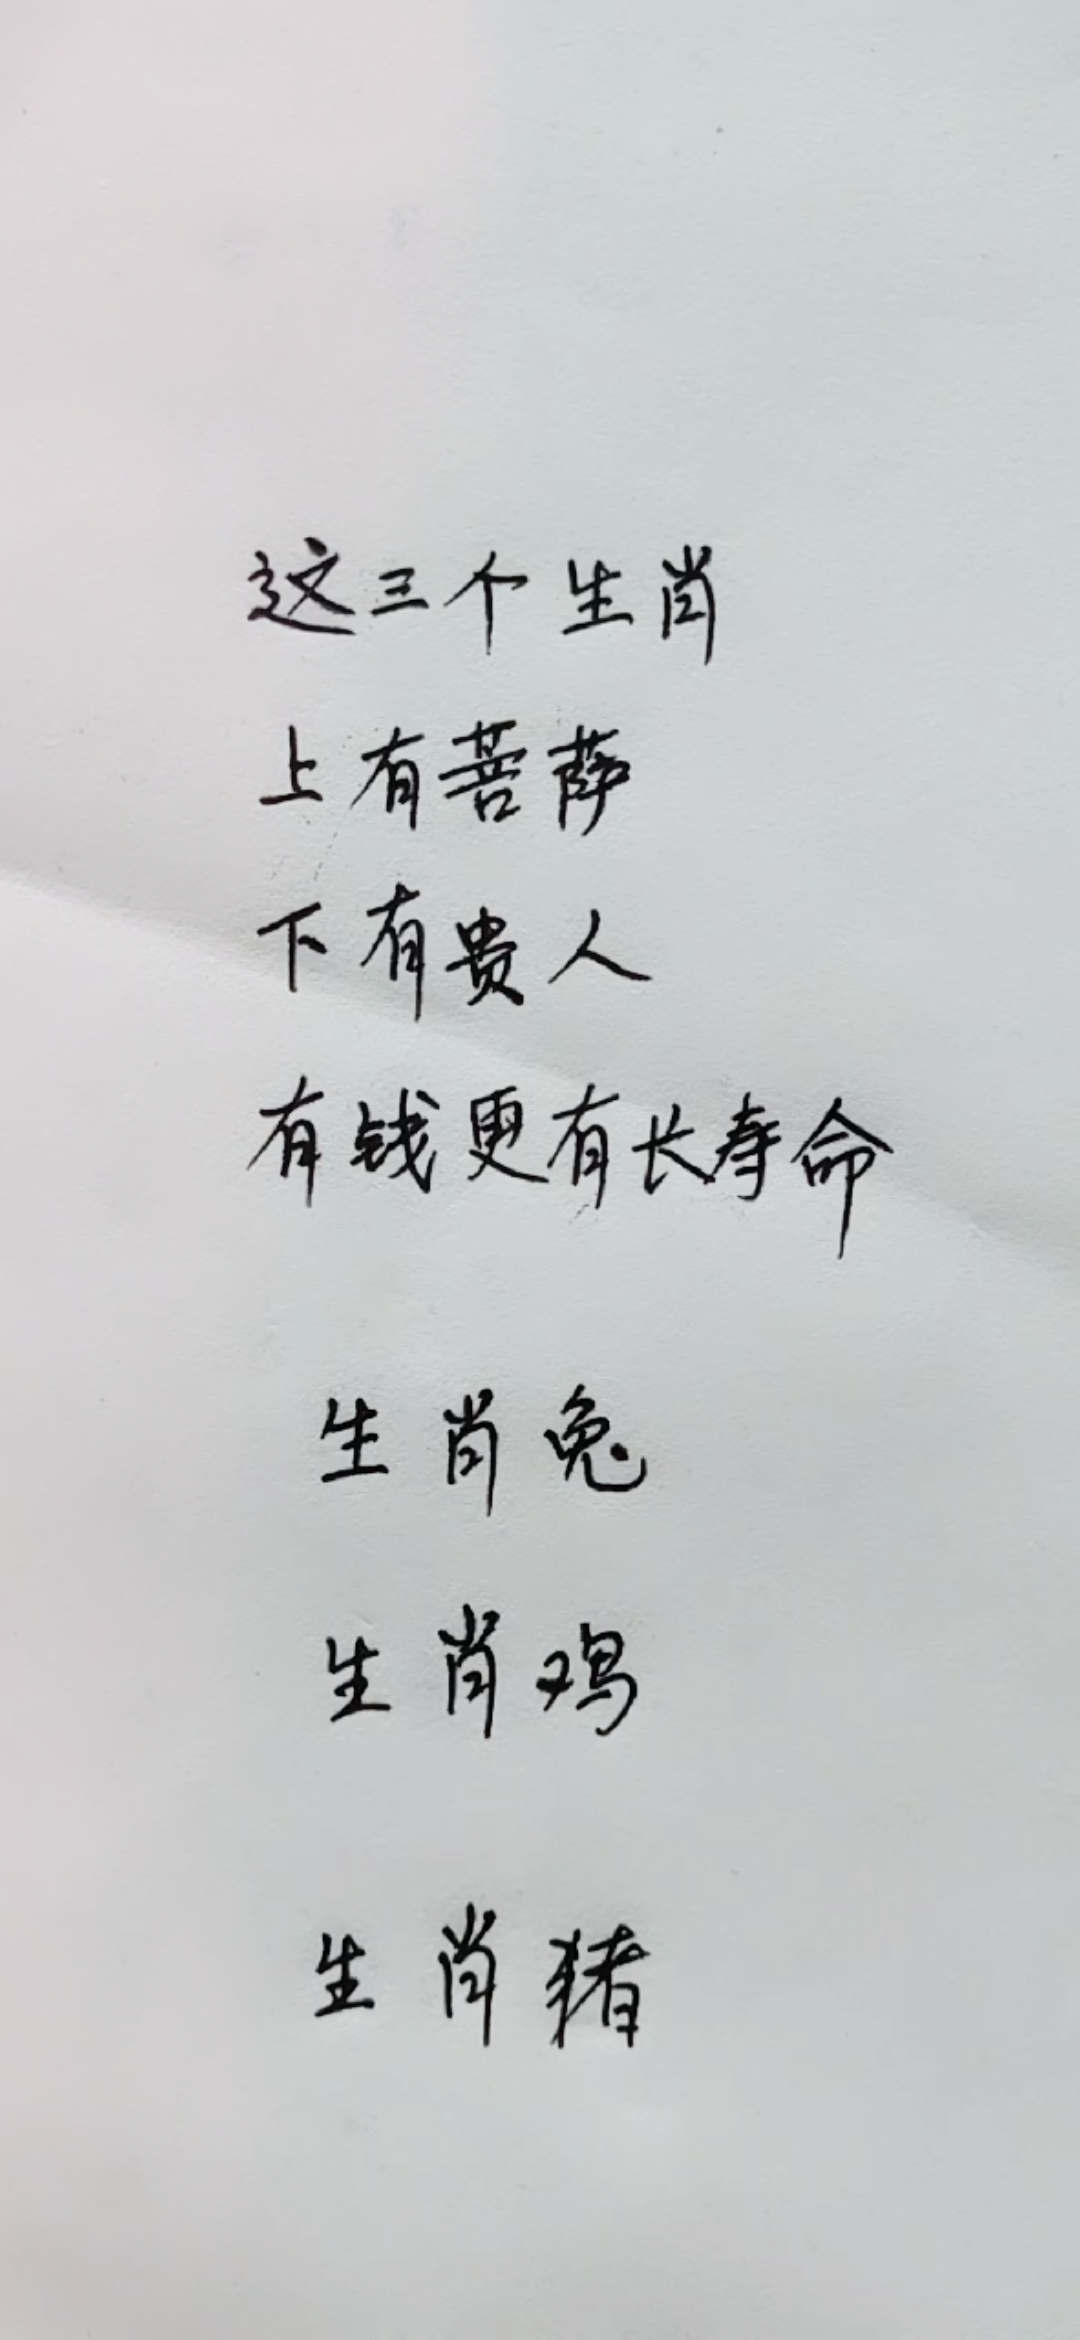 这三个生肖
上有菩萨
下有贵人
有钱更有长寿命
生肖兔
生肖鸡
生肖猪